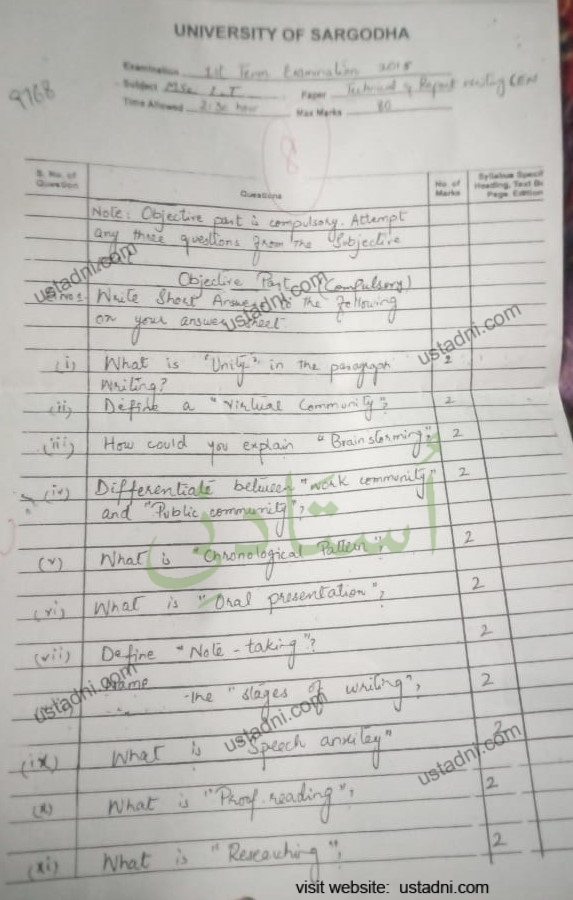 UNIVERSITY OF SARGODHA
Examination 1st Term Examination 2015
Subject MSc I.T Paper Technical & Report writing
Time Allowed 2:30 hour Max Marks 80
9768
8
S. No. of Question Questions No. of Marks Syllabus Specif Heading, Text Bo Page, Edition
Note: Objective part is compulsory. Attempt
any three questions from the Subjective
Objective Part (Compulsory)
Write Short Answer to the following
on your answer sheet
(i) What is "Unity" in the paragraph 2
Writing?
(ii) Define a "Virtual Community"? 2
(iii) How could you explain "Brain storming" 2
(iv) Differentiate between "work community" 2
and "Public community"?
(v) What is "Chronological Pattern"? 2
(vi) What is "Oral presentation"? 2
(vii) Define "Note-taking"? 2
Name the "stages of writing"? 2
(ix) What is "Speech anxitey" 2
(x) What is "Proof-reading"? 2
(xi) What is "Researching"? 2
استادنی
ustadni.com
ustadni.com
ustadni.com
ustadni.com
ustadni.com
ustadni.com
visit website: ustadni.com